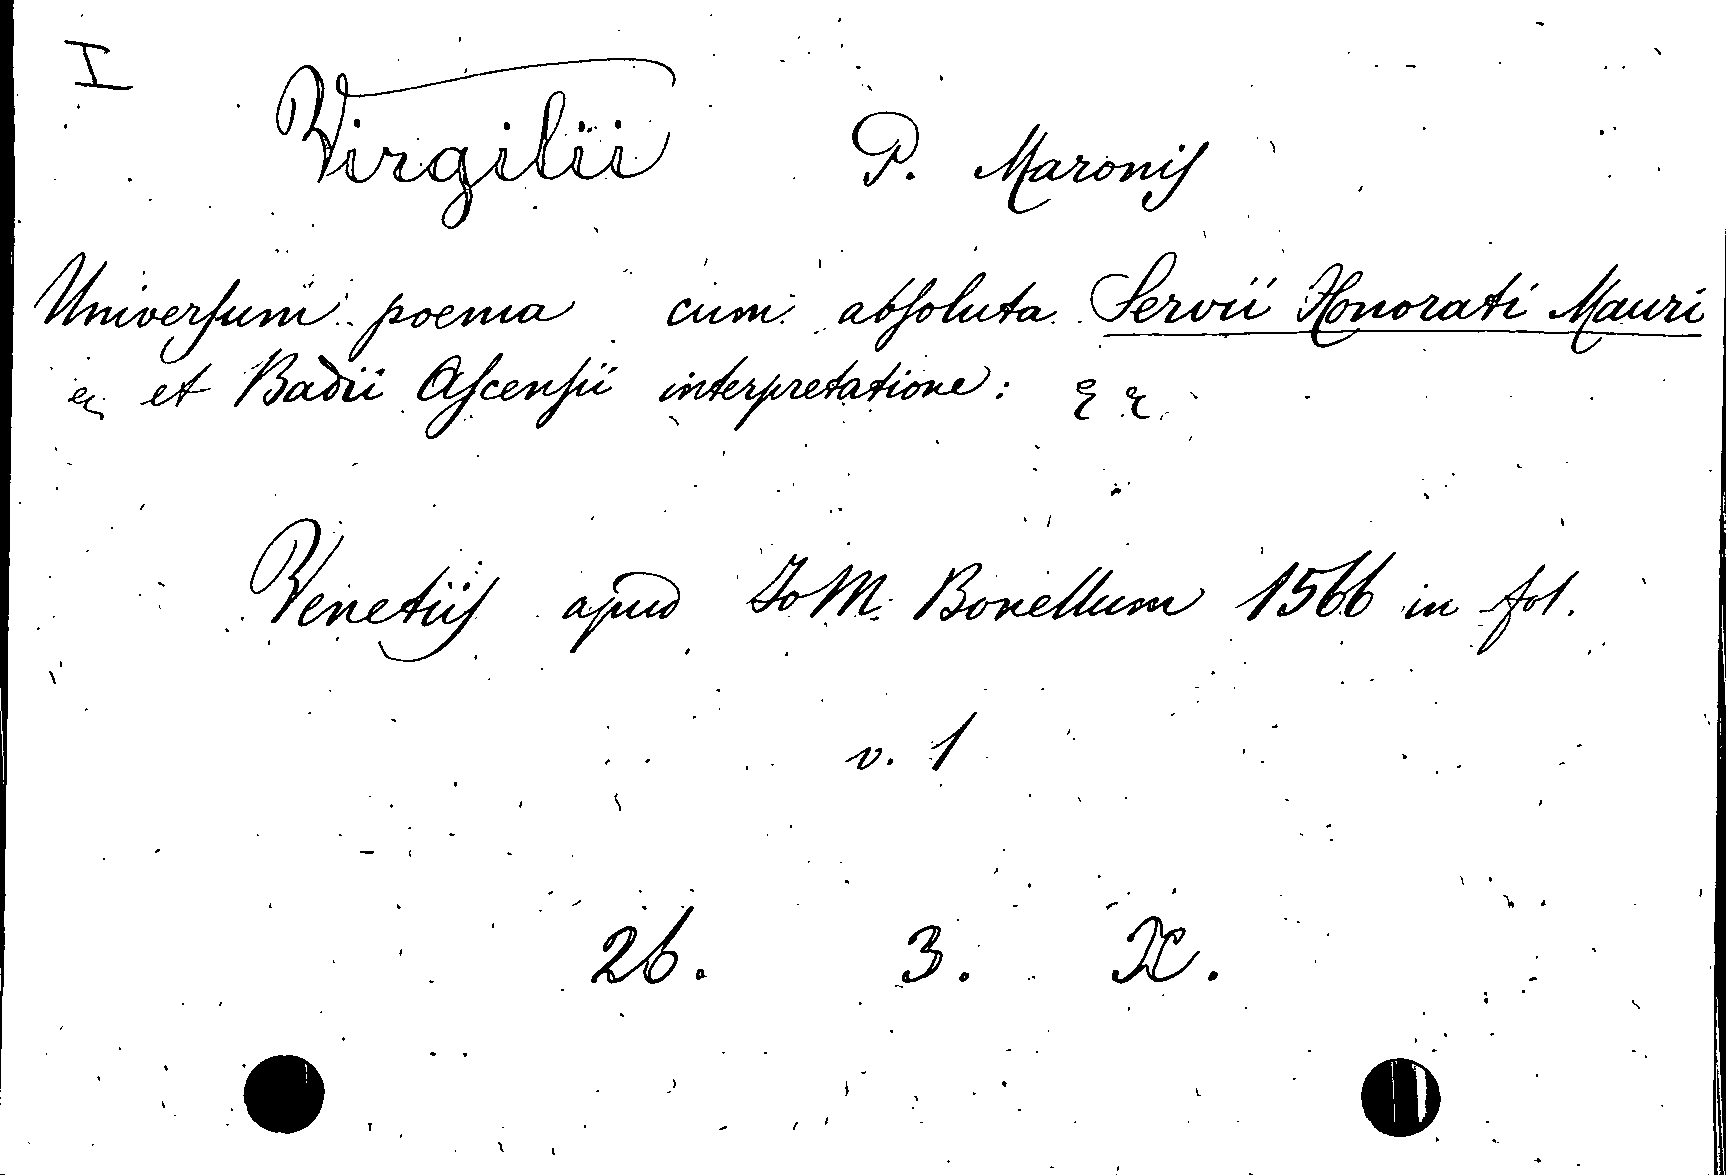 I
Virgilii P. Maronis
Universum poema cum absoluta Servii Honorati Mauri
et Badii Ascensii interpretatione:
Venetiis apud Io M. Bonellum 1566 in fol.
v. 1
26. 3. X.